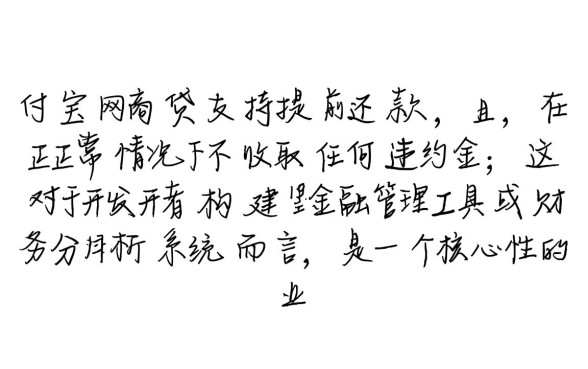 付宝网商贷支持提前还款，且，在
正正常情况下不收取任何违约金；这
对于开发开者构建望金融管理工具或财
务分月析系统而言，是一个核心性的
业